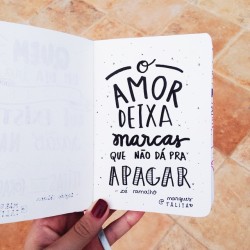 O
AMOR
DEIXA
marcas
QUE NÃO DÁ PRA
APAGAR
zé ramalho
@marquestalita